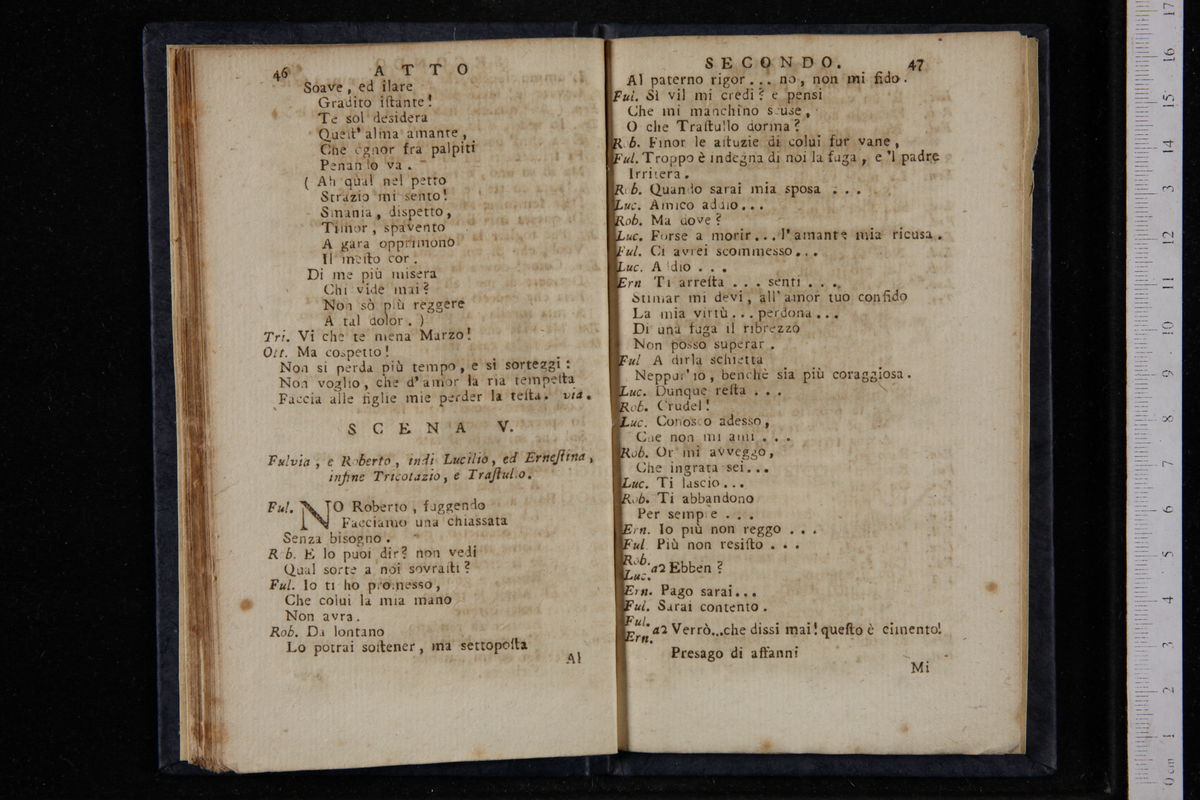 46 ATTO
Soave, ed ilare
Gradito iſtante!
Te sol desidera
Queſt' alma amante,
Che ognor fra palpiti
Penando va.
( Ah qual nel petto
Strazio mi sento!
Smania, dispetto,
Timor, spavento
A gara opprimono
Il meſto cor.
Di me più misera
Chi vide mai?
Non sò più reggere
A tal dolor. )
Tri. Vi che te mena Marzo!
Ott. Ma cospetto!
Non si perda più tempo, e si sorteggi:
Non voglio, che d'amor la ria tempeſta
Faccia alle figlie mie perder la teſta. via.
SCENA V.
Fulvia, e Roberto, indi Lucilio, ed Erneſtina,
infine Tricotazio, e Traſtullo.
Ful. NO Roberto, fuggendo
Facciamo una chiassata
Senza bisogno.
Rob. E lo puoi dir? non vedi
Qual sorte a noi sovraſti?
Ful. Io ti ho promesso,
Che colui la mia mano
Non avra.
Rob. Da lontano
Lo potrai soſtener, ma settopoſta
Al
SECONDO. 47
Al paterno rigor... no, non mi fido.
Ful. Sì vil mi credi? e pensi
Che mi manchino scuse,
O che Traſtullo dorma?
Rob. Finor le aſtuzie di colui fur vane,
Ful. Troppo è indegna di noi la fuga, e 'l padre
Irritera.
Rob. Quando sarai mia sposa ...
Luc. Amico addio...
Rob. Ma dove?
Luc. Forse a morir... l'amante mia ricusa.
Ful. Ci avrei scommesso...
Luc. Addio ...
Ern Ti arreſta ... senti ...
Stimar mi devi, all'amor tuo confido
La mia virtù... perdona...
Di una fuga il ribrezzo
Non posso superar.
Ful A dirla schietta
Neppur'io, benchè sia più coraggiosa.
Luc. Dunque reſta ...
Rob. Crudel!
Luc. Conosco adesso,
Che non mi ami ...
Rob. Or mi avveggo,
Che ingrata sei...
Luc. Ti lascio...
Rob. Ti abbandono
Per sempre ...
Ern. Io più non reggo ...
Ful. Più non resiſto ...
Rob.
Luc. a2 Ebben?
Ern. Pago sarai...
Ful. Sarai contento.
Ful.
Ern. a2 Verrò...che dissi mai! queſto è cimento!
Presago di affanni
Mi